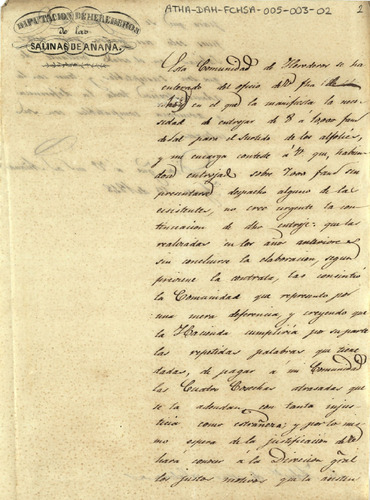 ATHA-DAH-FCHSA-005-003-02
2
DIPUTACION DE HEREDEROS
de las
SALINAS DE AÑANA.
Esta Comunidad de Herederos se ha
enterado del oficio de V. fha
en el que la manifiesta la nece
sidad de entrojar de 8 a 10000 fans
de sal para el surtido de los alfolies,
y me encarga conteste á V. que, habien
dose entrojado sobre 7000 fans sin
presentarse despacho alguno de las
existentes, no cree urgente la con
tinuacion de dho entroje: que las
realizadas en los años anteriores
sin concluirse la elaboracion, segun
previene la contrata, las consintió
la Comunidad que represento por
una mera deferencia, y creyendo que
la Hacienda cumpliria por su parte
las repetidas palabras que tiene
dadas, de pagar á mi Comunidad
las Cuatro Cosechas atrasadas que
se la adeudan con tanta injus
ticia como estrañeza; y por lo mis
mo espera de la justificacion de V.
hará conocer á la Direccion gral
los justos motivos que la asisten